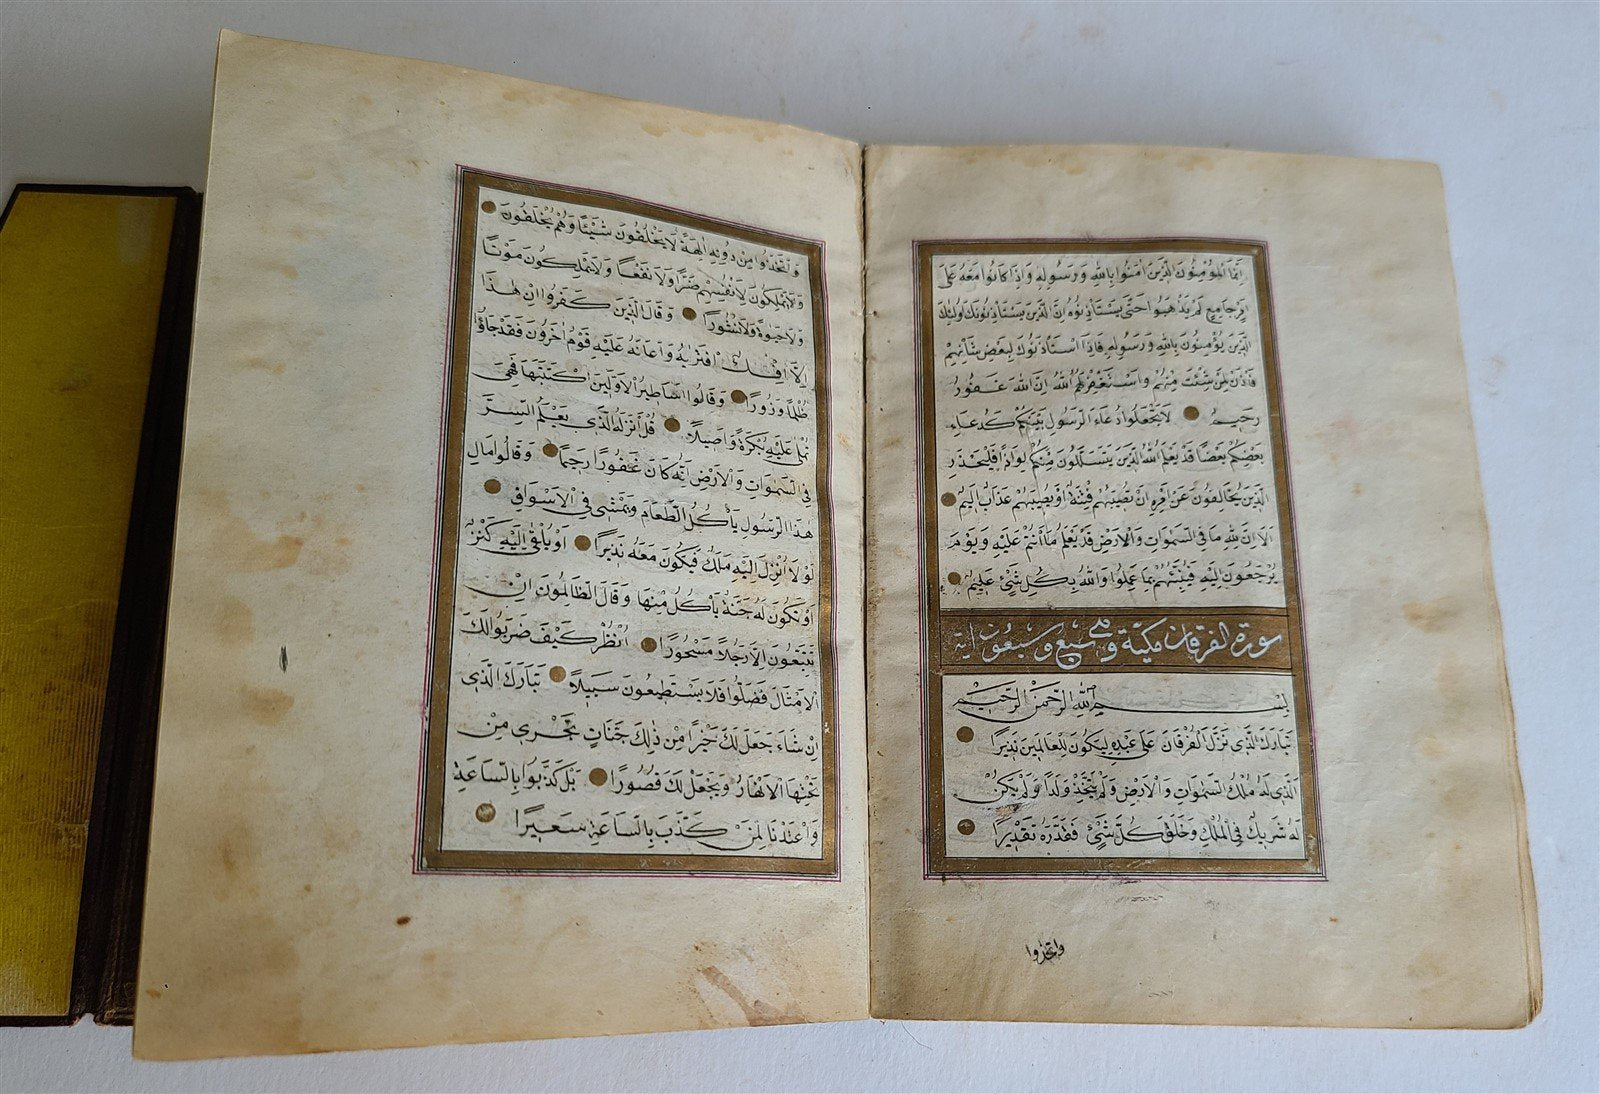 اِنَّمَا الْمُؤْمِنُونَ الَّذِينَ اٰمَنُوا بِاللّٰهِ وَرَسُولِهٖ وَاِذَا كَانُوا مَعَهُ عَلٰى
اَمْرٍ جَامِعٍ لَمْ يَذْهَبُوا حَتّٰى يَسْتَأْذِنُوهُ اِنَّ الَّذِينَ يَسْتَأْذِنُونَكَ اُولٰئِكَ
الَّذِينَ يُؤْمِنُونَ بِاللّٰهِ وَرَسُولِهٖ فَاِذَا اسْتَأْذَنُوكَ لِبَعْضِ شَأْنِهِمْ
فَأْذَنْ لِمَنْ شِئْتَ مِنْهُمْ وَاسْتَغْفِرْ لَهُمُ اللّٰهَ اِنَّ اللّٰهَ غَفُورٌ
رَحِيمٌ لَا تَجْعَلُوا دُعَاءَ الرَّسُولِ بَيْنَكُمْ كَدُعَاءِ
بَعْضِكُمْ بَعْضًا قَدْ يَعْلَمُ اللّٰهُ الَّذِينَ يَتَسَلَّلُونَ مِنْكُمْ لِوَاذًا فَلْيَحْذَرِ
الَّذِينَ يُخَالِفُونَ عَنْ اَمْرِهٖ اَنْ تُصِيبَهُمْ فِتْنَةٌ اَوْ يُصِيبَهُمْ عَذَابٌ اَلِيمٌ
اَلَا اِنَّ لِلّٰهِ مَا فِي السَّمٰوَاتِ وَالْاَرْضِ قَدْ يَعْلَمُ مَا اَنْتُمْ عَلَيْهِ وَيَوْمَ
يُرْجَعُونَ اِلَيْهِ فَيُنَبِّئُهُمْ بِمَا عَمِلُوا وَاللّٰهُ بِكُلِّ شَيْءٍ عَلِيمٌ
سورة الفرقان مكية وهي سبع وسبعون آية
بِسْمِ اللّٰهِ الرَّحْمٰنِ الرَّحِيمِ
تَبَارَكَ الَّذِي نَزَّلَ الْفُرْقَانَ عَلٰى عَبْدِهٖ لِيَكُونَ لِلْعَالَمِينَ نَذِيرًا
اَلَّذِي لَهُ مُلْكُ السَّمٰوَاتِ وَالْاَرْضِ وَلَمْ يَتَّخِذْ وَلَدًا وَلَمْ يَكُنْ
لَهُ شَرِيكٌ فِي الْمُلْكِ وَخَلَقَ كُلَّ شَيْءٍ فَقَدَّرَهُ تَقْدِيرًا
واتخذوا
وَاتَّخَذُوا مِنْ دُونِهٖ اٰلِهَةً لَا يَخْلُقُونَ شَيْئًا وَهُمْ يُخْلَقُونَ
وَلَا يَمْلِكُونَ لِاَنْفُسِهِمْ ضَرًّا وَلَا نَفْعًا وَلَا يَمْلِكُونَ مَوْتًا
وَلَا حَيٰوةً وَلَا نُشُورًا وَقَالَ الَّذِينَ كَفَرُوا اِنْ هٰذَا
اِلَّا اِفْكٌ افْتَرٰيهُ وَاَعَانَهُ عَلَيْهِ قَوْمٌ اٰخَرُونَ فَقَدْ جَاؤُا
ظُلْمًا وَزُورًا وَقَالُوا اَسَاطِيرُ الْاَوَّلِينَ اكْتَتَبَهَا فَهِيَ
تُمْلٰى عَلَيْهِ بُكْرَةً وَاَصِيلًا قُلْ اَنْزَلَهُ الَّذِي يَعْلَمُ السِّرَّ
فِي السَّمٰوَاتِ وَالْاَرْضِ اِنَّهُ كَانَ غَفُورًا رَحِيمًا وَقَالُوا مَالِ
هٰذَا الرَّسُولِ يَأْكُلُ الطَّعَامَ وَيَمْشِي فِي الْاَسْوَاقِ
لَوْلَا اُنْزِلَ اِلَيْهِ مَلَكٌ فَيَكُونَ مَعَهُ نَذِيرًا اَوْ يُلْقٰى اِلَيْهِ كَنْزٌ
اَوْ تَكُونُ لَهُ جَنَّةٌ يَأْكُلُ مِنْهَا وَقَالَ الظَّالِمُونَ اِنْ
تَتَّبِعُونَ اِلَّا رَجُلًا مَسْحُورًا اُنْظُرْ كَيْفَ ضَرَبُوا لَكَ
الْاَمْثَالَ فَضَلُّوا فَلَا يَسْتَطِيعُونَ سَبِيلًا تَبَارَكَ الَّذِي
اِنْ شَاءَ جَعَلَ لَكَ خَيْرًا مِنْ ذٰلِكَ جَنَّاتٍ تَجْرِي مِنْ
تَحْتِهَا الْاَنْهَارُ وَيَجْعَلْ لَكَ قُصُورًا بَلْ كَذَّبُوا بِالسَّاعَةِ
وَاَعْتَدْنَا لِمَنْ كَذَّبَ بِالسَّاعَةِ سَعِيرًا